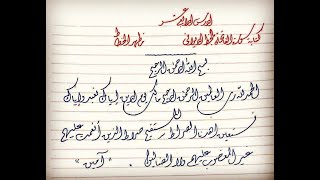 الدرس الرابع عشر
كتابة سورة الفاتحة بالخط الديواني
بسم الله الرحمن الرحيم
الحمد لله رب العالمين الرحمن الرحيم مالك يوم الدين إياك نعبد وإياك
نستعين اهدنا الصراط المستقيم صراط الذين أنعمت عليهم
غير المغضوب عليهم ولا الضالين . "آمين"